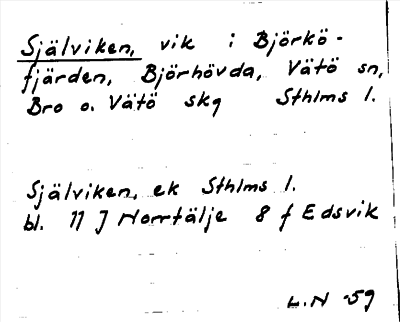 Själviken, vik i Björkö-
fjärden, Björhövda, Vätö sn,
Bro o. Vätö skg Sthlms l.
Själviken, ek Sthlms l.
bl. 11 J Norrtälje 8 f Edsvik
L.N -59